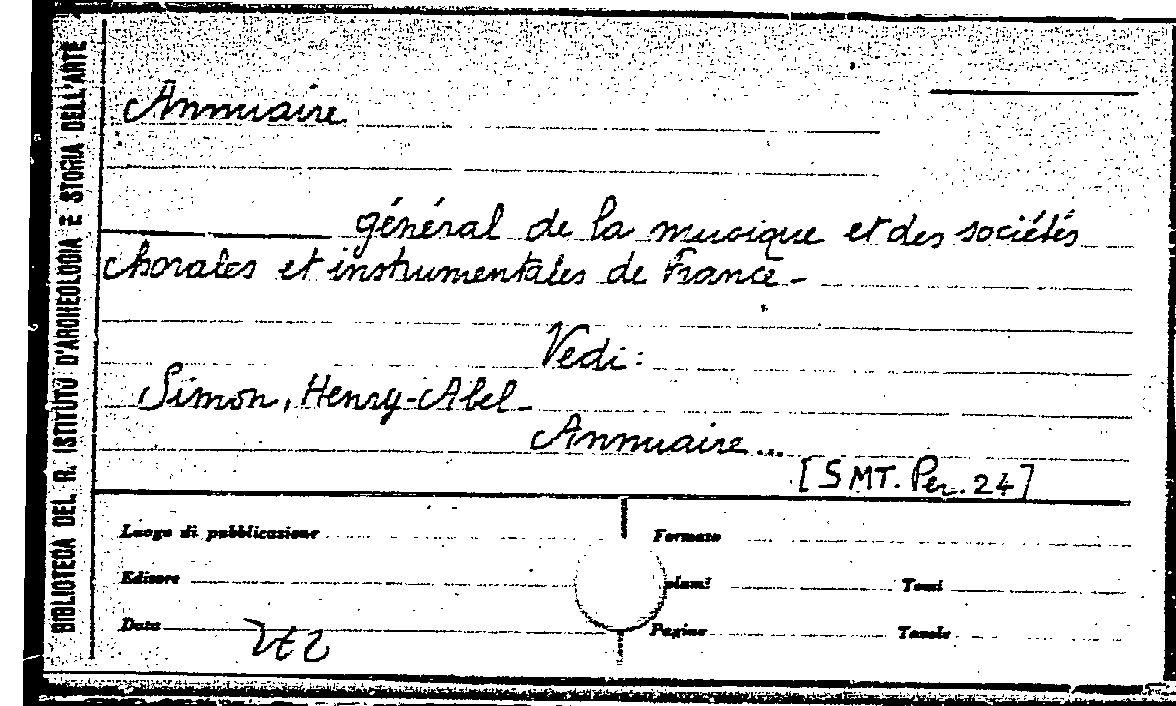 BIBLIOTECA DEL R. ISTITUTO D'ARCHEOLOGIA E STORIA DELL'ARTE
Annuaire
général de la musique et des sociétés
chorales et instrumentales de France -
Vedi:
Simon, Henry-Abel -
Annuaire...
[SMT. Per. 24]
Luogo di pubblicazione
Formato
Editore
olumi
Tomi
Data
Pagine
Tavole